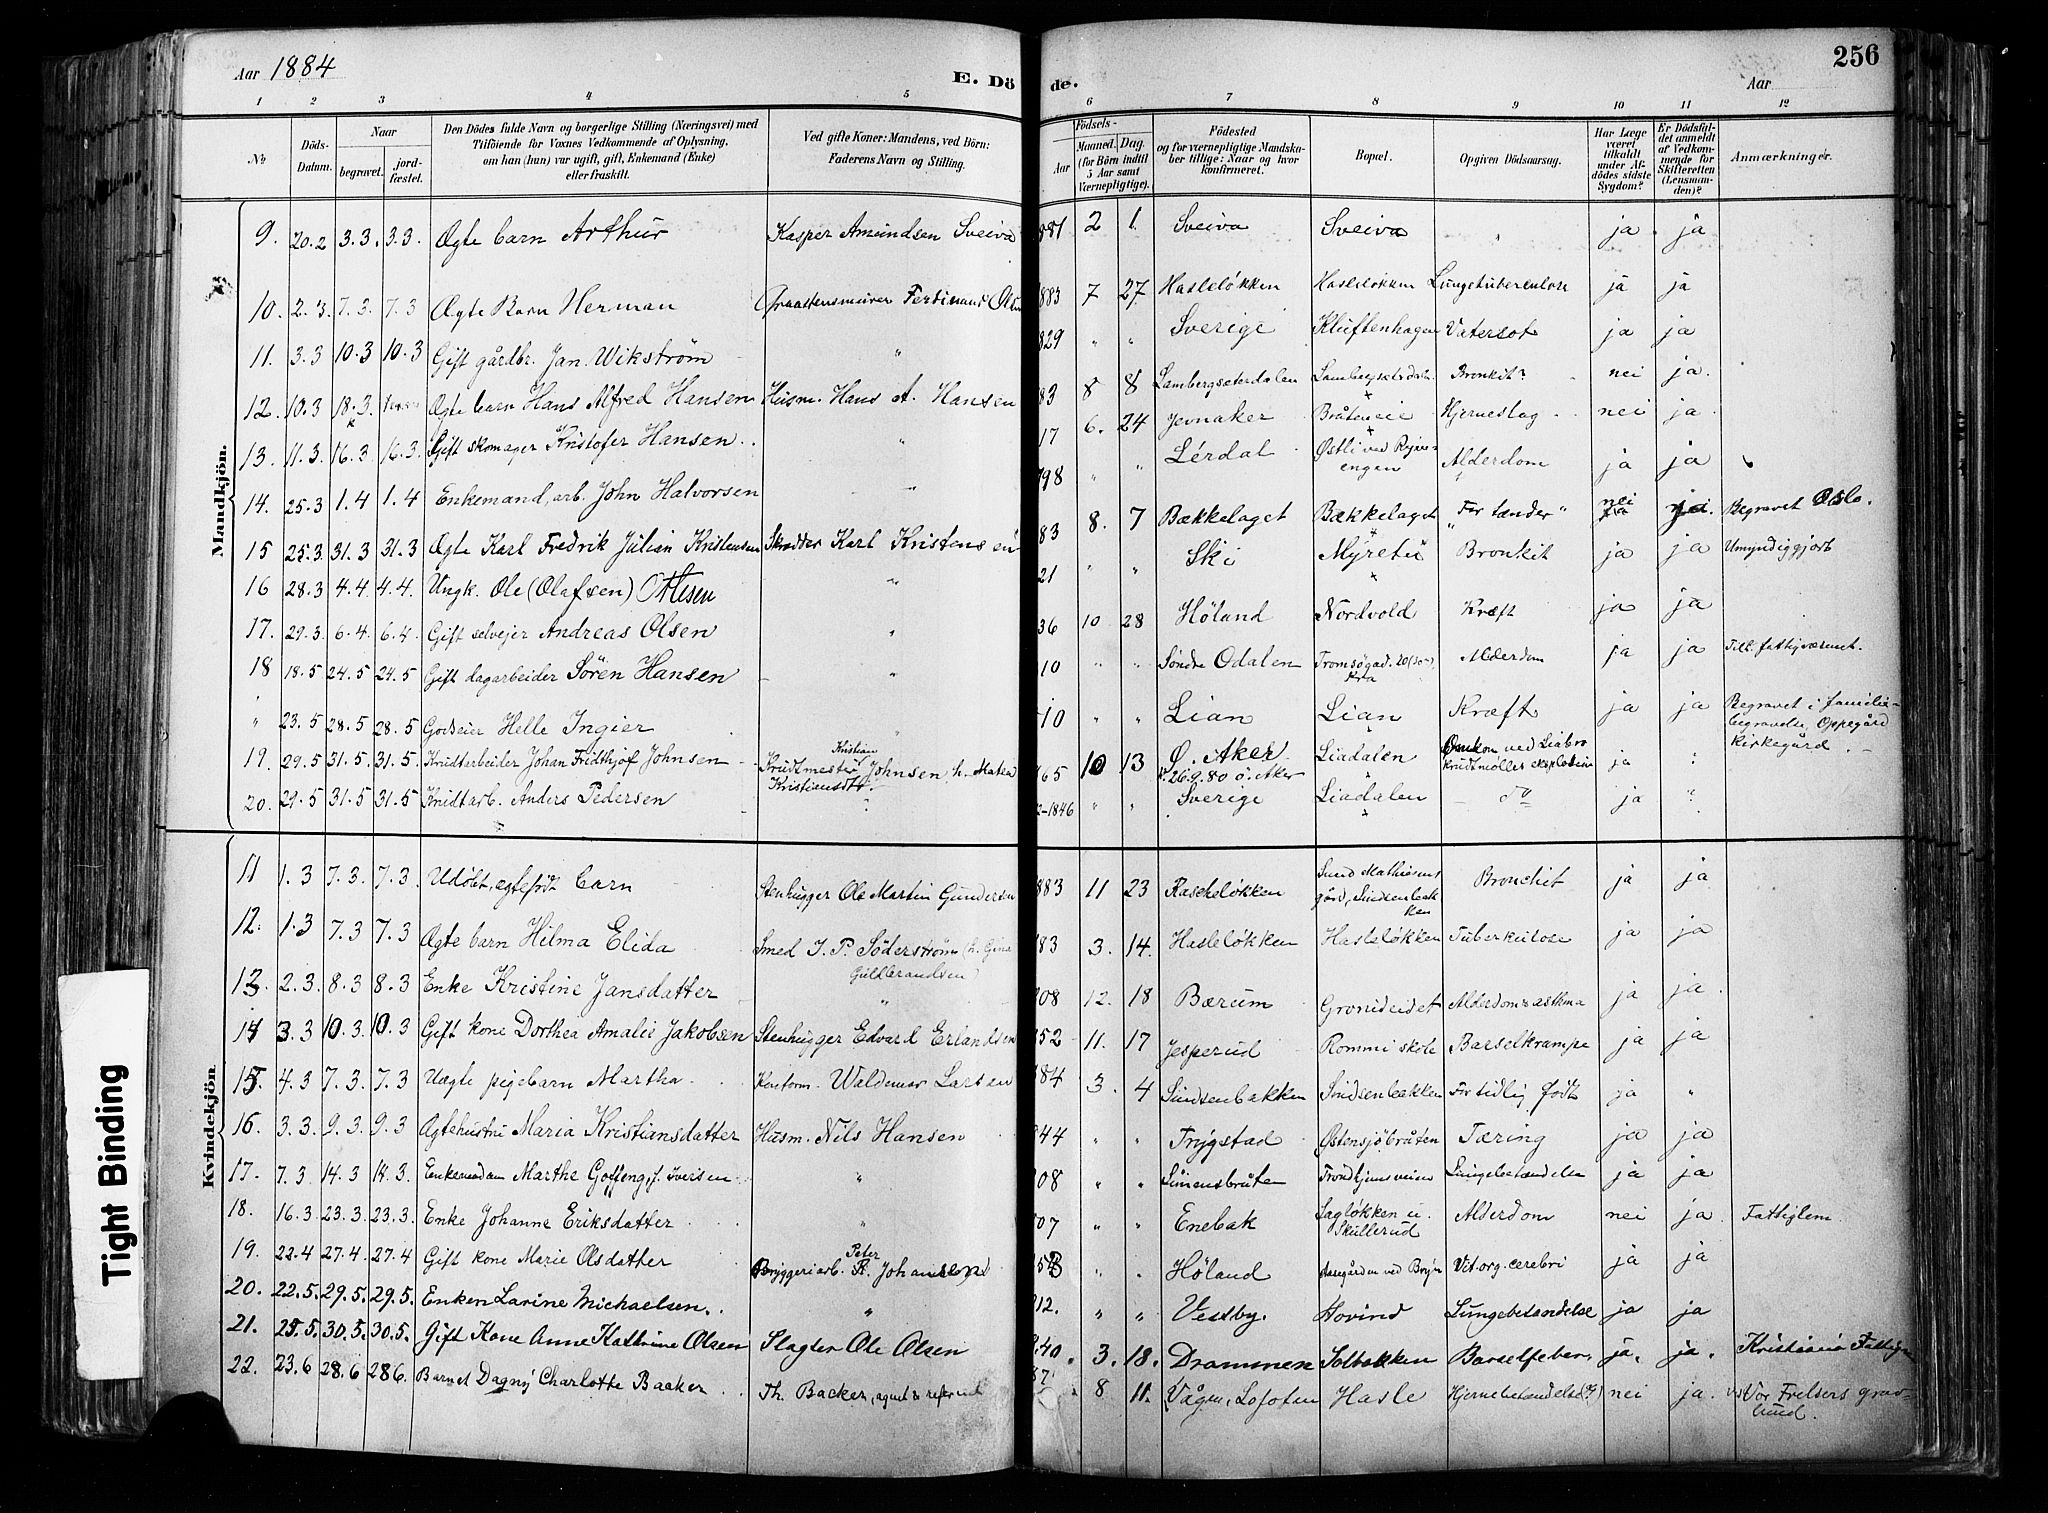 Aar 1884 E. Dö de. Aar 256
1 2 3 4 5 6 7 8 9 10 11 12
No Döds-Datum. Naar begravet. jord-fæstet. Den Dödes fulde Navn og borgerlige Stilling (Næringsvei) med Tilföiende for Voxnes Vedkommende af Oplysning, om han (hun) var ugift, gift, Enkemand (Enke) eller fraskilt. Ved gifte Koner: Mandens, ved Börn: Faderens Navn og Stilling. Födsels- Aar Maaned. Dag. (for Börn indtil 5 Aar samt Værnepligtige). Födested og for værnepligtige Mandska-ber tillige: Naar og hvor konfirmeret. Bopæl. Opgiven Dödsaarsag. Har Læge været tilkaldt under Af-dödes sidste Sygdom? Er Dödsfal-det anmeldt af Vedkom-mende for Skifteretten (Lensman-den)? Anmærkninger.
Mandkjön.
9. 20.2 3.3. 3.3. Ægte barn Arthur Kasper Amundsen Sveiva 881 2 1. Sveiva Sveiva " ja ja
10. 2.3. 7.3. 7.3 Ægte Barn Herman Graastensmurer Ferdinand Olsen 883 7 27 Hasleløkken Hasleløkken Lungetuberculose ja ja
11. 3.3 10.3 10.3 Gift gårdbr. Jan Wikstrøm " 829 " " Sverige Kluftenhagen Vatersot ja ja
12. 10.3 18.3. Ægte barn Hans Alfred Hansen Husm. Hans A. Hansen 83 8 8 Lambergseterdalen Bronkit? nei ja.
13. 11.3. 16.3 16.3. Gift skomager Kristofer Hansen " 17 6. 24 Jevnaker Bråteneie Hjerneslag nei ja
14. 25.3 1.4 1.4 Enkemand, arb. John Halvorsen " 798 " " Lérdal Østli ved Ryen-engen Alderdom ja ja
15 25.3 31.3 31.3 Ægte Karl Fredrik Julian Kristensen Skrædder Karl Kristensen 83 8. 7 Bækkelaget Bækkelaget "For tænder" nei Begravet Oslo.
16 28.3 4.4. 4.4. Ungk. Ole (Olafsen) Ottesen " 21 " " Ski Myretu Bronkit ja ja Umyndiggjort
17. 29.3. 6.4. 6.4 Gift selvejer Andreas Olsen " 36 10 28 Høland Nordvold Kræft ja ja
18 18.5 24.5 24.5 Gift dagarbeider Sören Hansen " 10 " " Søndre Odalen Tromsögad. 20 Kra Alderdom ja ja Tilh. fattigvæsenet.
" 23.5 28.5 28.5 Godseier Helle Ingier " 10 " " Lian Lian Kræft ja ja Begravet i familie-begravelse, Oppegård kirkegård.
19. 29.5 31.5 31.5 Krudtarbeider Johan Fridthjof Johnsen Krudtmester Kristian Johnsen h. Matea Kristiansdtr. 65 10 13 Ø. Aker k. 26.9.80 ö. Aker Liadalen Omkom ved Liabro krudtmølles eksplosion ja "
20. 29.5 31.5 31.5 Krudtarb. Anders Pedersen " 1846 " " Sverige Liadalen do ja "
Kvindekjön
11 1.3 7.3. 7.3 Udöbt, ægtefødt barn Stenhugger Ole Martin Gundersen 883 11 23 Rascheløkken Sund Mathisens gård, Sindsenbakken Bronchit ja ja
12. 1.3 7.3 7.3 Ægte barn Hilma Elida Smed J. P. Söderström (h. Gina Guldbrandsen) 83 3. 14. Hasleløkken Hasleløkken Tuberkulose ja ja
13. 2.3. 8.3 8.3 Enke Kristine Jansdatter " 08 12. 18 Bærum Alderdom & asthma ja ja
14 3.3 10.3 10.3 Gift kone Dorthea Amalie Jakobsen Stenhugger Edvard Erlandsen 52 11. 17 Jesperud Rommi skole Barselkrampe ja ja
15. 4.3 7.3. 7.3 Uægte pigebarn Martha Waldemar Larsen 84 3. 4 Sindsenbakken Sindsenbakken For tidlig født ja "
16. 3.3. 9.3. 9.3 Ægtehustru Maria Kristiansdatter Husm. Nils Hansen 44 " " Trygstad Østensjöbråten Tæring ja ja
17. 7.3 14.3 14.3. Enkemadam Marthe Goffeng, f. Iversen " 08 " " Simensbråten Trondhjemsveien Lungebetændelse ja ja
18. 16.3 23.3. 23.3. Enke Johanne Eriksdatter " 07 " " Enebak Sagløkken u. Skullerud Alderdom nei ja Fattiglem
19. 22.4 27.4. 27.4 Gift kone Marie Olsdatter Bryggeriarb. Peter Johansen " . Høland ved Bryn Vit. org. cerebri ja ja
20. 22.5. 29.5. 29.5. Enken Larine Michaelsen. " 12. " " Vestby. Hovind Lungebetændelse ja ja
21. 25.5. 30.5. 30.5. Gift Kone Anne Kathrine Olsen Slagter Ole Olsen 40. 3. 18. Drammen Solbakken Barselfeber ja. ja. Kristiania
22. 23.6 28.6 286. Barnet Dagny Charlotte Backer Th. Backer, agent & referent 8 11. Vågan, Lofoten Hasle Hjernebetændelse (?) nei ja. Vor Frelsers grav-lund.
Tight Binding